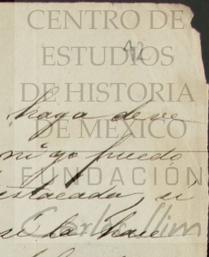 CENTRO DE
ESTUDIOS
DE HISTORIA
DE MÉXICO
FUNDACIÓN
Carlos Slim
92
haga de ve
ni yo puedo
estacada si
se la hace